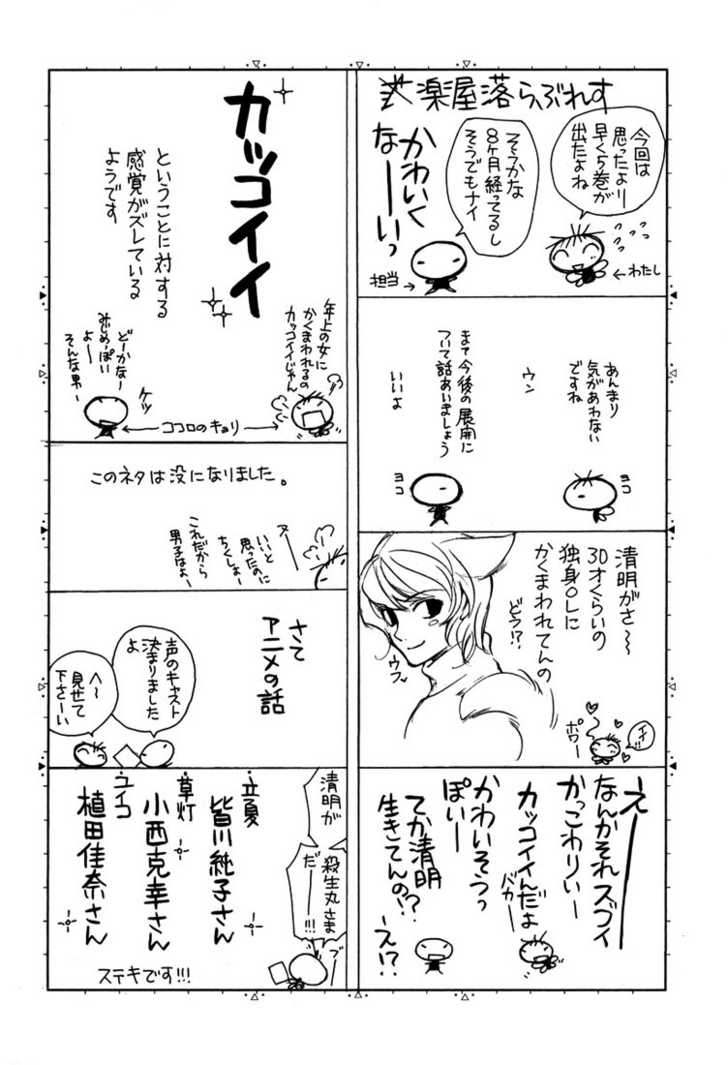 楽屋落らぶれす
今回は
思ったより
早く5巻が
出たよね
わたし
そうかな
8ヶ月経ってるし
そうでもナイ
かわいく
なーいっ
担当
あんまり
気があわない
ですね
ウン
まァ今後の展開に
ついて話あいましょう
いいよ
ヨコ
ヨコ
清明がさ〜
30才くらいの
独身OLに
かくまわれてんの
どう!?
ウフ
ポワー
えーー
なんかそれズブイ
かっこわりぃー
カッコイイんだよ
バカー
かわいそうっ
ぽいー
てか清明
生きてんの!?
え!?
カッコイイ
ということに対する
感覚がズレている
ようです
年上の女に
かくまわれるの
カッコイイじゃん
どーかなー
みじめっぽい
よー
そんな男ー
ケッ
ココロのキョリ
このネタは没になりました。
いいと
思ったのに
ちくしょー
これだから
男子はよー
さて
アニメの話
声のキャスト
決まりました
よ
へ〜
見せて
下さーい
清明が
殺生丸さま
だーー!!!
立夏
皆川純子さん
草灯
小西克幸さん
ユイコ
植田佳奈さん
ステキです!!!